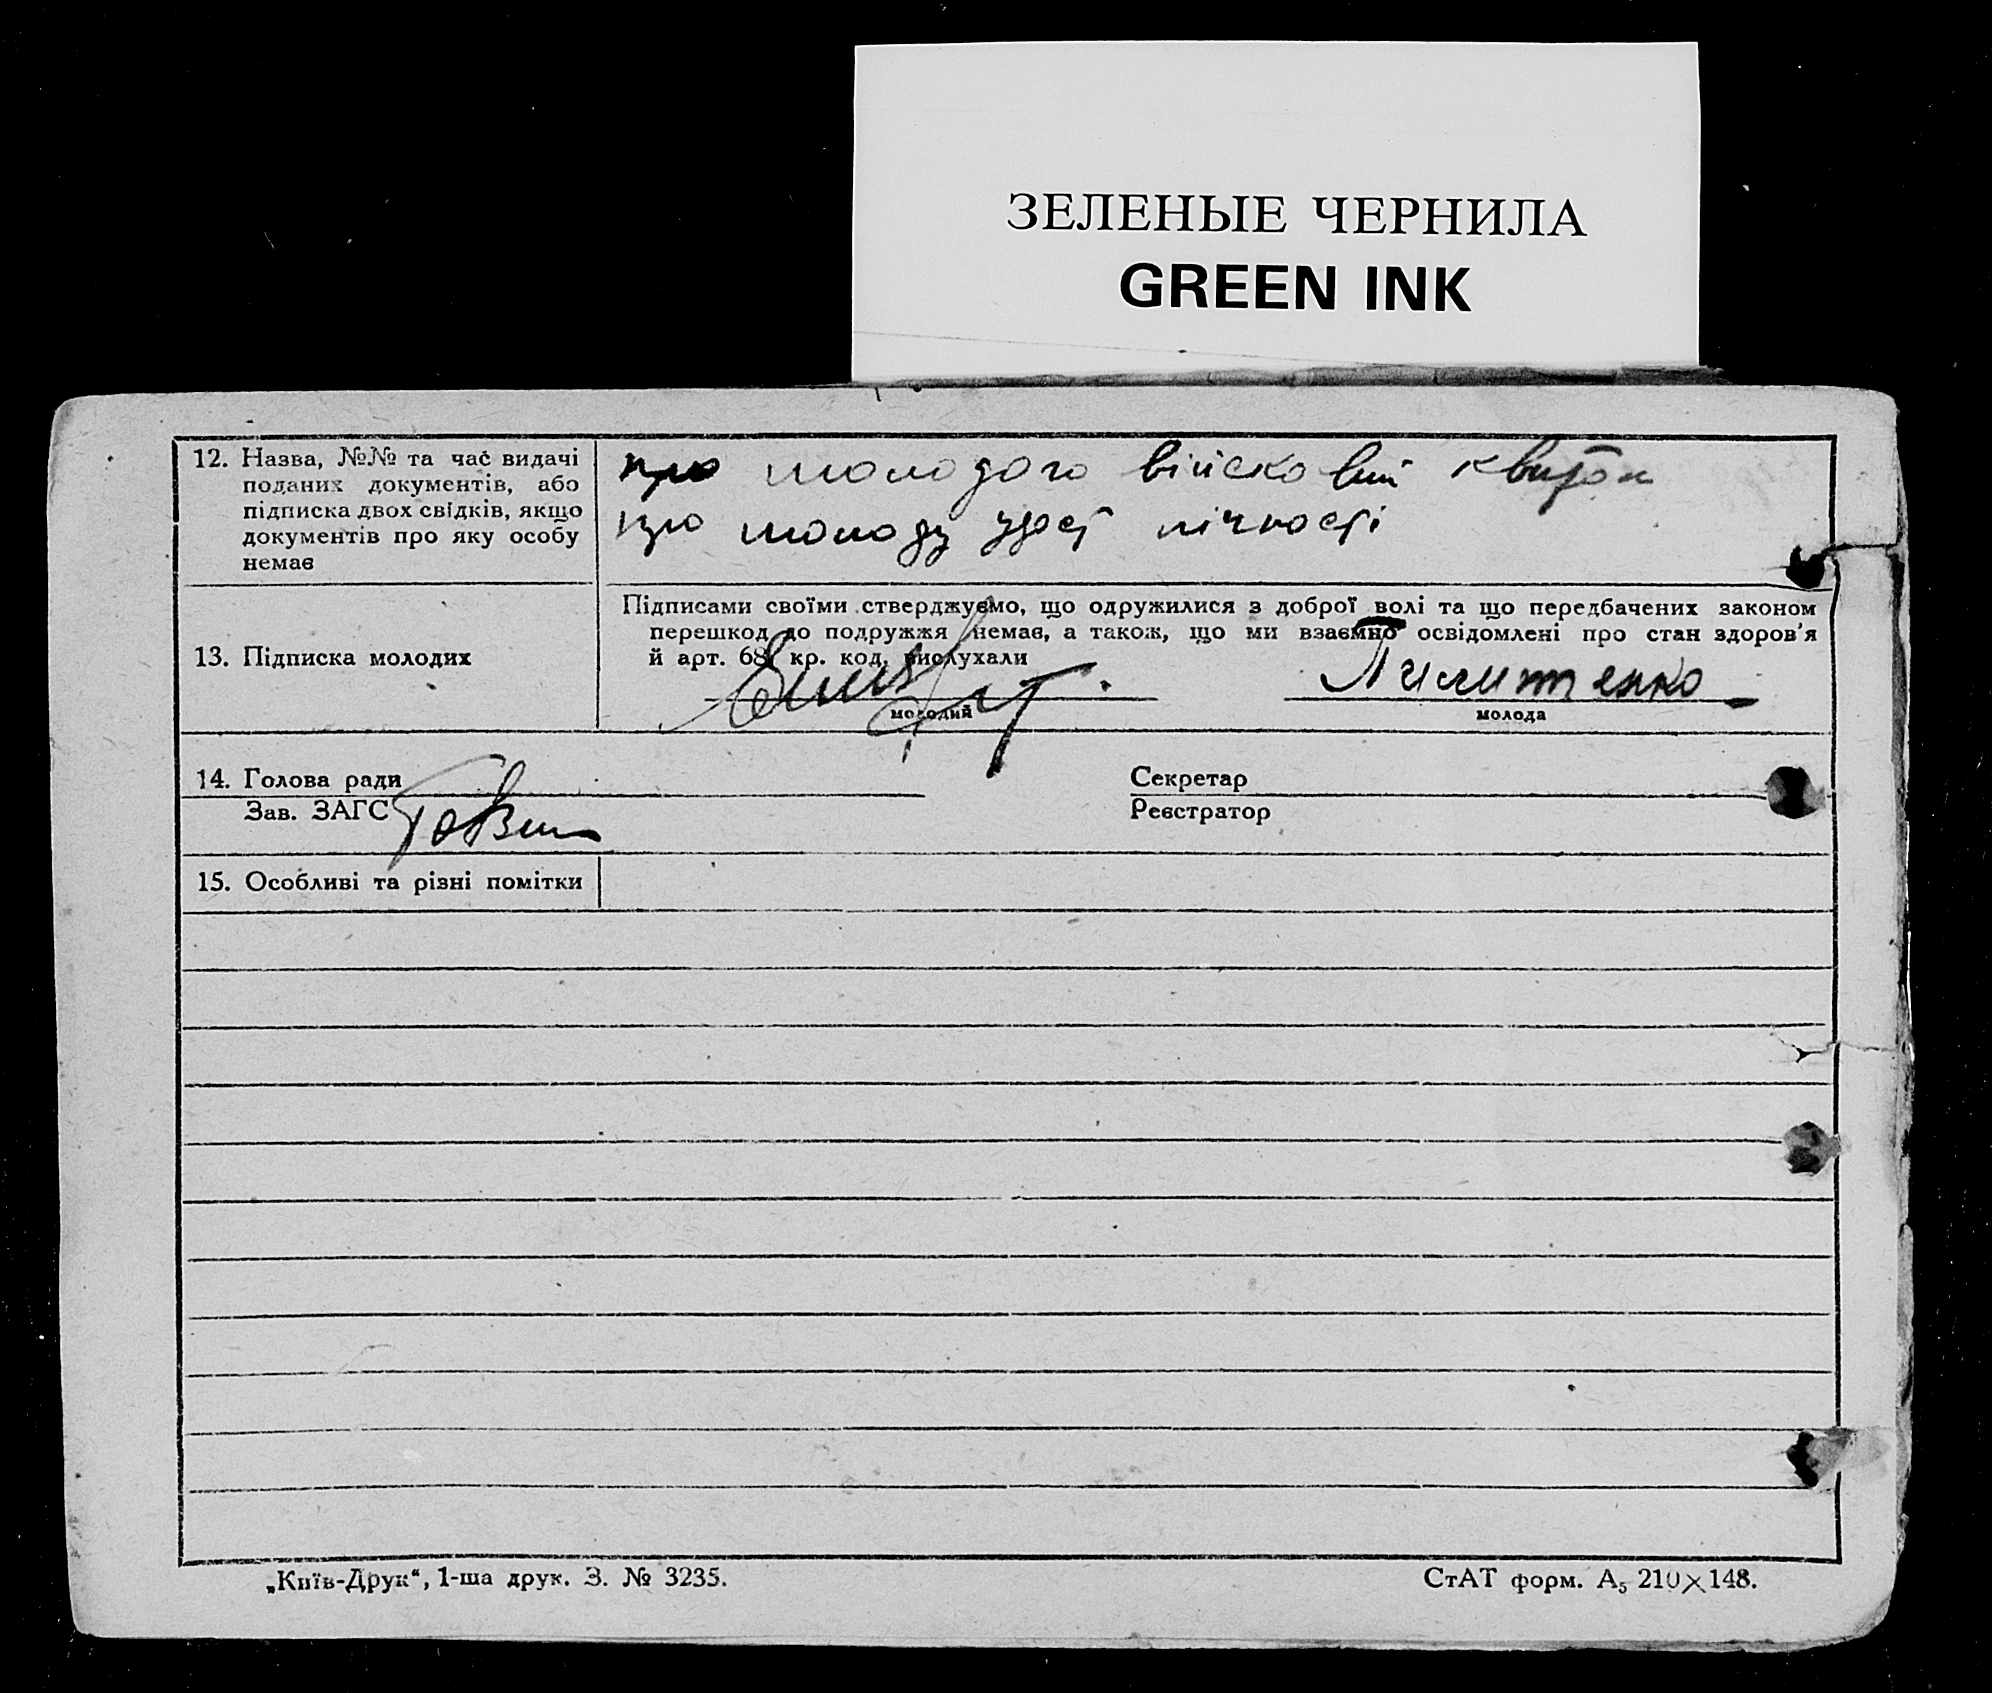 ЗЕЛЕНЫЕ ЧЕРНИЛА
GREEN INK
12. Назва, №№ та час видачі
поданих документів, або
підписка двох свідків, якщо
документів про яку особу
немає
про молодого військовий квиток
про молоду удост лічності
13. Підписка молодих
Підписами своїми стверджуємо, що одружилися з доброї волі та що передбачених законом
перешкод до подружжя немає, а також, що ми взаємно освідомлені про стан здоров'я
й арт. 68 кр. код. вислухали
молодий
молода
14. Голова ради
Зав. ЗАГС
Секретар
Реєстратор
15. Особливі та різні помітки
„Київ-Друк“, 1-ша друк. З. № 3235.
СтАТ форм. А5 210×148.